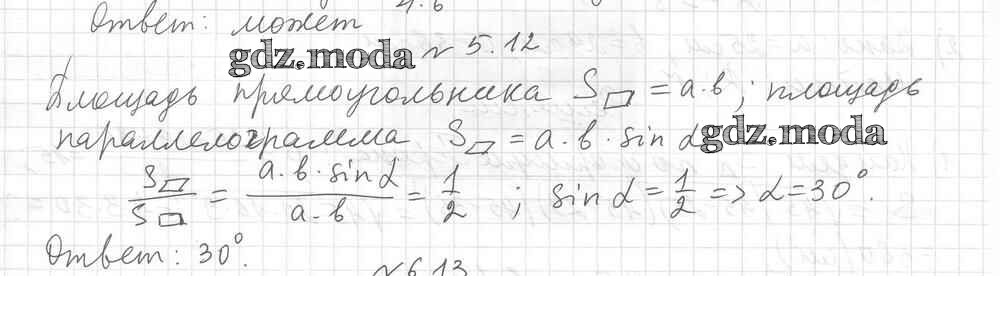 Ответ: может
gdz.moda № 5.12
Площадь прямоугольника S▭ = a·b; площадь
параллелограмма S▱ = a·b·sin α gdz.moda
S▱/S▭ = a·b·sin α / a·b = 1/2 ; sin α = 1/2 => α = 30°.
Ответ: 30°.